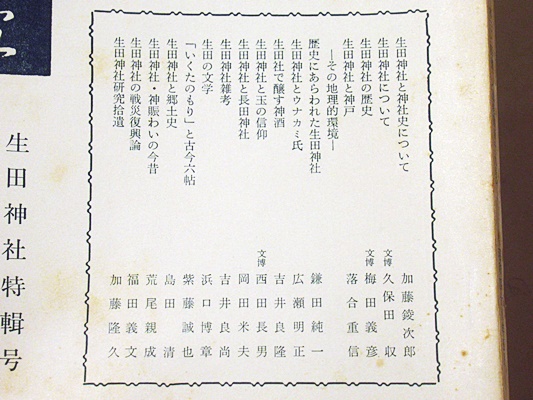 生田神社と神社史について 加藤錂次郎
生田神社について 文博 久保田収
生田神社の歴史 文博 梅田義彦
生田神社と神戸 落合重信
―その地理的環境―
歴史にあらわれた生田神社 鎌田純一
生田神社とウナカミ氏 広瀬明正
生田社で醸す神酒 吉井良隆
生田神社と玉の信仰 文博 西田長男
生田神社と長田神社 岡田米夫
生田神社雑考 吉井良尚
生田の文学 浜口博章
「いくたのもり」と古今六帖 紫藤誠也
生田神社と郷土史 島田清
生田神社・神賑わいの今昔 荒尾親成
生田神社の戦災復興論 福田義文
生田神社研究拾遺 加藤隆久
生田神社特輯号